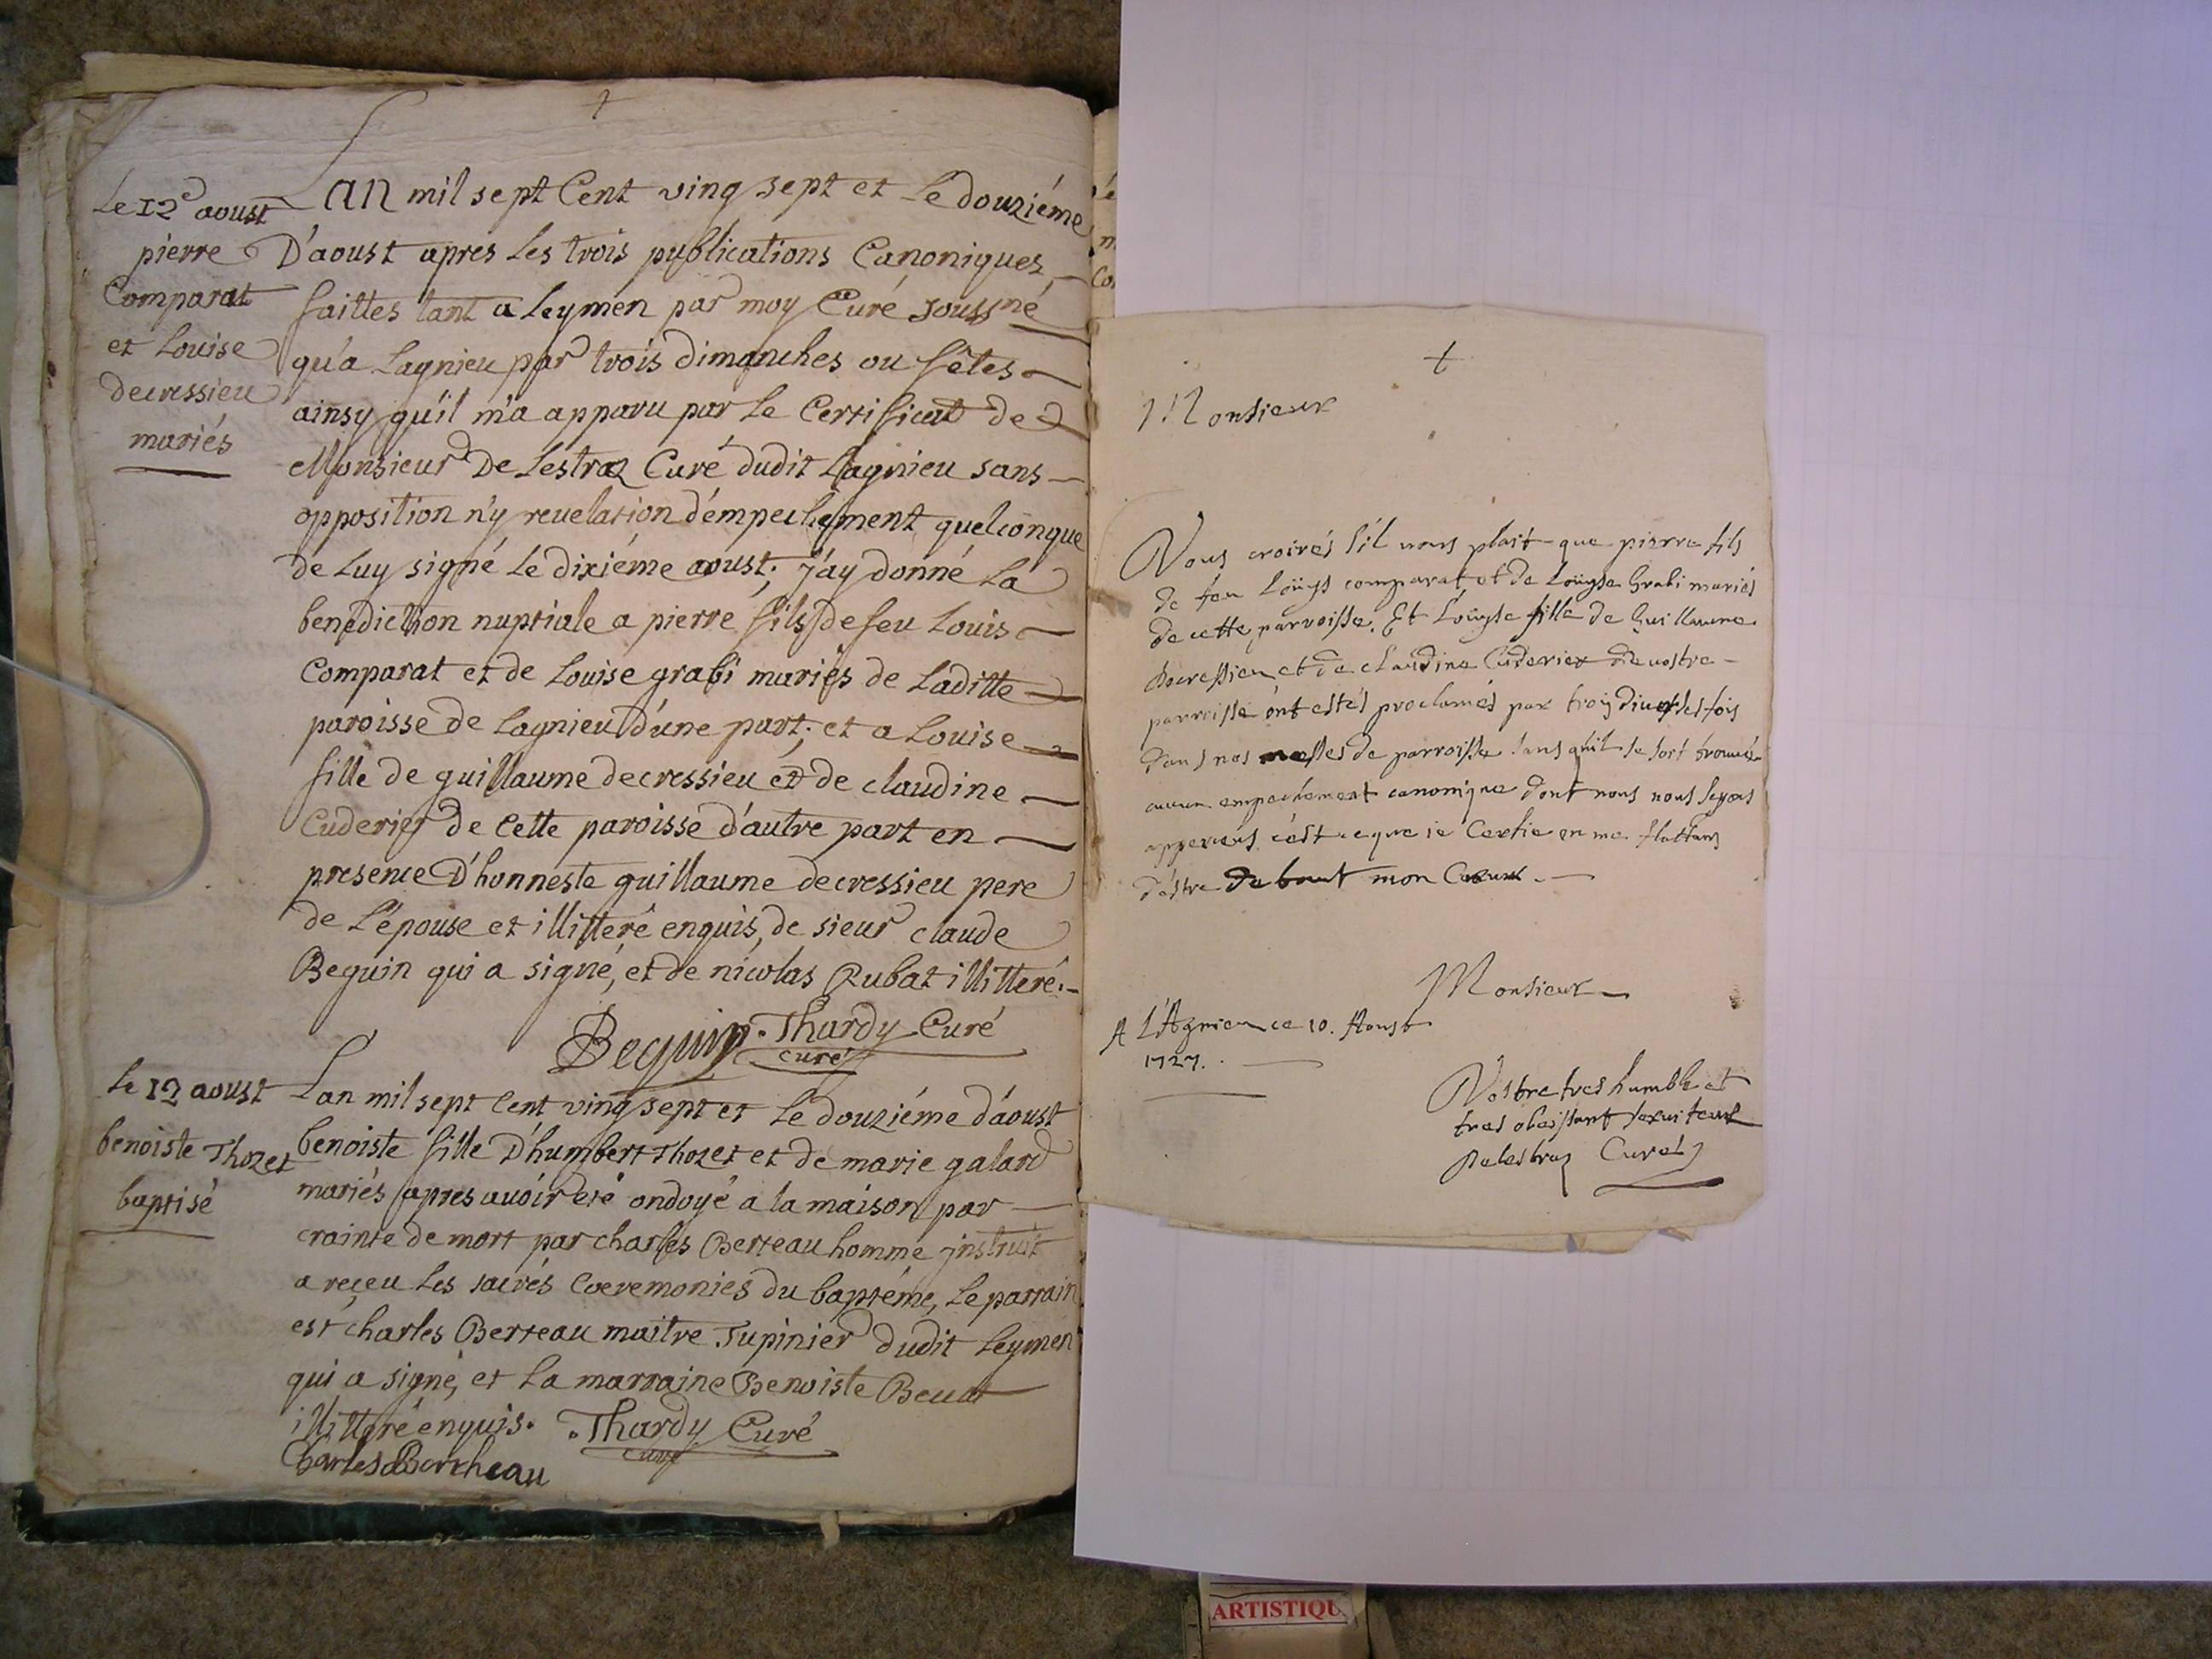 +
Le 12e aoust
pierre
Comparat
et Louise
decressieu
mariés
Lan mil sept Cent ving sept et Le douziéme
D'aoust apres Les trois publications Canoniques
faittes tant a Leymen par moy Curé soussné
qu'a Lagnieu par trois dimanches ou fêtes
ainsy qu'il m'a apparu par Le Certificat de
Monsieur De Lestraz Curé dudit Lagnieu sans
opposition n'y revelation d'empechement quelconque
de Luy signé Le dixiéme aoust; J'ay donné La
benediction nuptiale a pierre fils de feu Louis
Comparat et de Louise grabi mariés de Laditte
paroisse de Lagnieu d'une part; et a Louise
fille de guillaume decressieu et de claudine
Cuderier de Cette paroisse d'autre part en
presence D'honneste guillaume decressieu pere
de L'épouse et illitteré enquis, de sieur claude
Beguin qui a signé, et de nicolas Rubat illitteré.
Beguin Thardy Curé
curé
Le 12 aoust
benoiste Thozet
baptisé
Lan mil sept Cent ving sept et Le douziéme d'aoust
benoiste fille D'humbert Thozet et de marie galard
mariés apres avoir eté ondoyé a la maison par
crainte de mort par charles Berteau homme instruit
a reçeu Les sacrés Coeremonies du baptéme, Le parrain
est charles Berteau maitre Tupinier dudit Leymen
qui a signé, et La marraine Benoiste
illitteré enquis. Thardy Curé
curé
Charles Bertheau
+
Monsieur
Vous croirés s'il vous plait que pierre fils
de feu Loüys comparat et de Loüyse Grabi mariés
de cette parroisse. Et Loüyse fille de Guillaume
decressieu et de claudine Cuderier de vostre
parroisse ont estés proclamés par trois diverses fois
dans nos messes de parroisse sans qu'il se soit trouvé
aucun empechement canonique dont nous nous soyons
apperceus c'est ce que ie Certie en me flattans
d'estre de tout mon Coeur.
Monsieur
A L'Agnieu ce 10. Aoust
1727.
Vostre tres humble et
tres obeissant serviteur
Delestraz Curé
ARTISTIQU